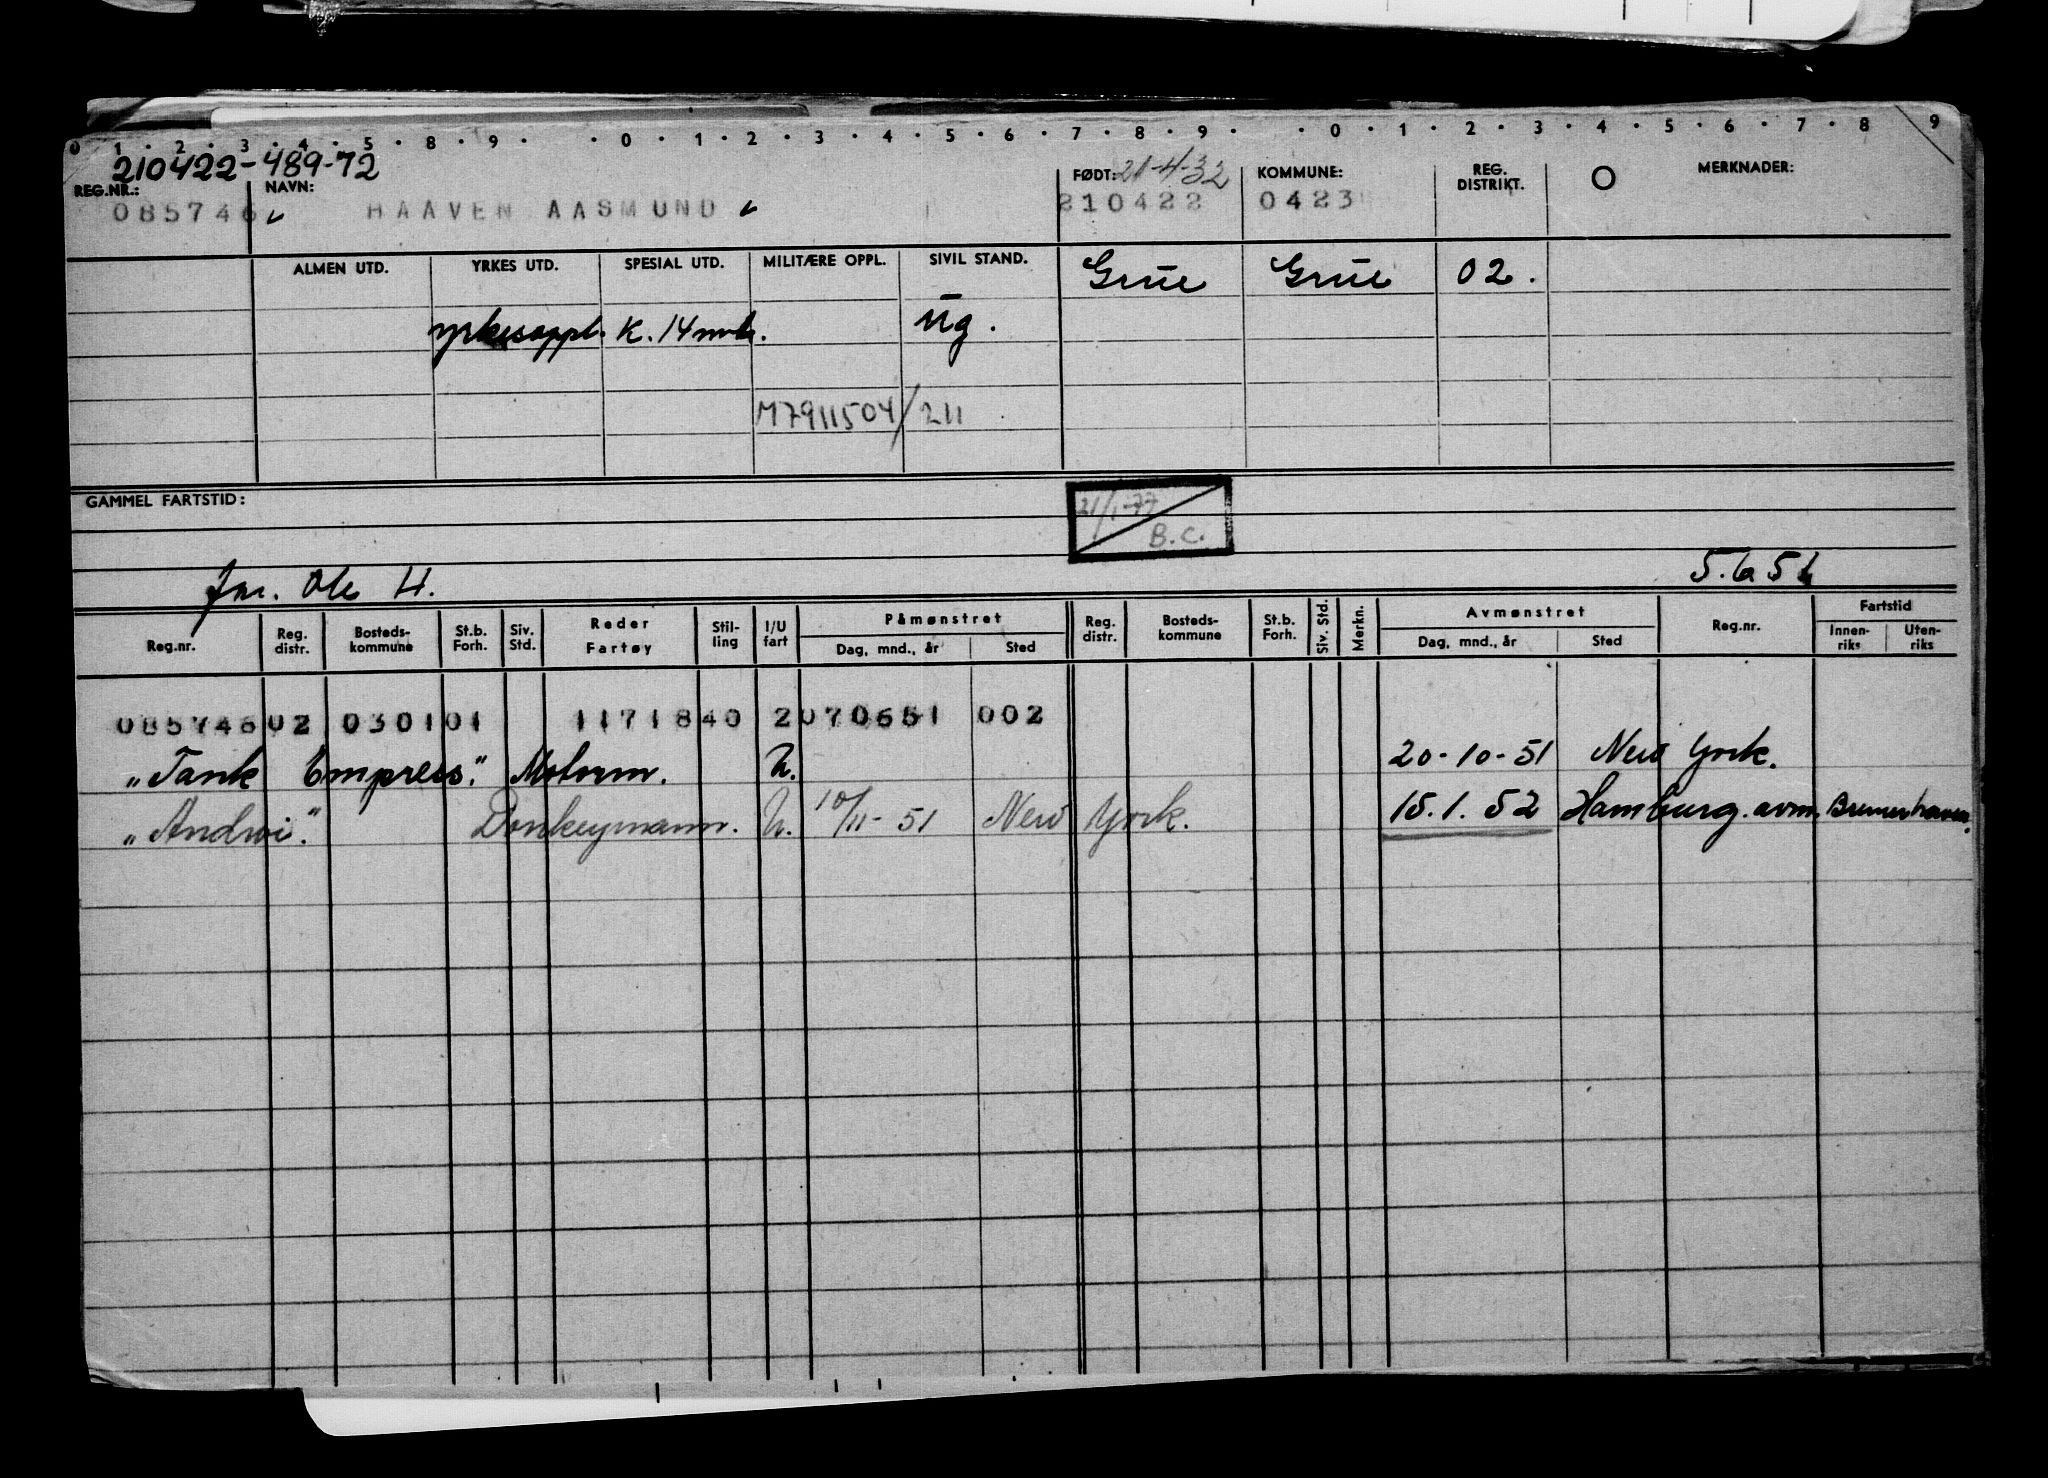 0 1 2 3 4 5 8 9 0 1 2 3 4 5 6 7 8 9 0 1 2 3 4 5 6 7 8 9
210422-489-72
REG.NR.: NAVN: FØDT: 21-4-32 KOMMUNE: REG. DISTRIKT. MERKNADER:
085746 HAAVEN AASMUND 210422 0423
ALMEN UTD. YRKES UTD. SPESIAL UTD. MILITÆRE OPPL. SIVIL STAND. Grue Grue 02.
yrkesoppl. K. 14 mnd. Ug.
M7911504/211
GAMMEL FARTSTID:
21/1-77
B.C.
Far. Ole H. 5.6.51
Reg.nr. Reg. distr. Bosteds-kommune St.b. Forh. Siv. Std. Reder Fartøy Stil-ling I/U fart Påmønstret Dag, mnd., år Sted Reg. distr. Bosteds-kommune St.b. Forh. Siv. Std. Merkn. Avmønstret Dag, mnd., år Sted Reg.nr. Fartstid Innen-riks Uten-riks
085746 02 0301 01 11718 40 2 070651 002
"Tank Empress." Motorm. U. 20-10-51 New York.
"Andwi." Donkeymann. U. 10/11-51 New York. 15.1.52 Hamburg. avm. Bremerhaven.